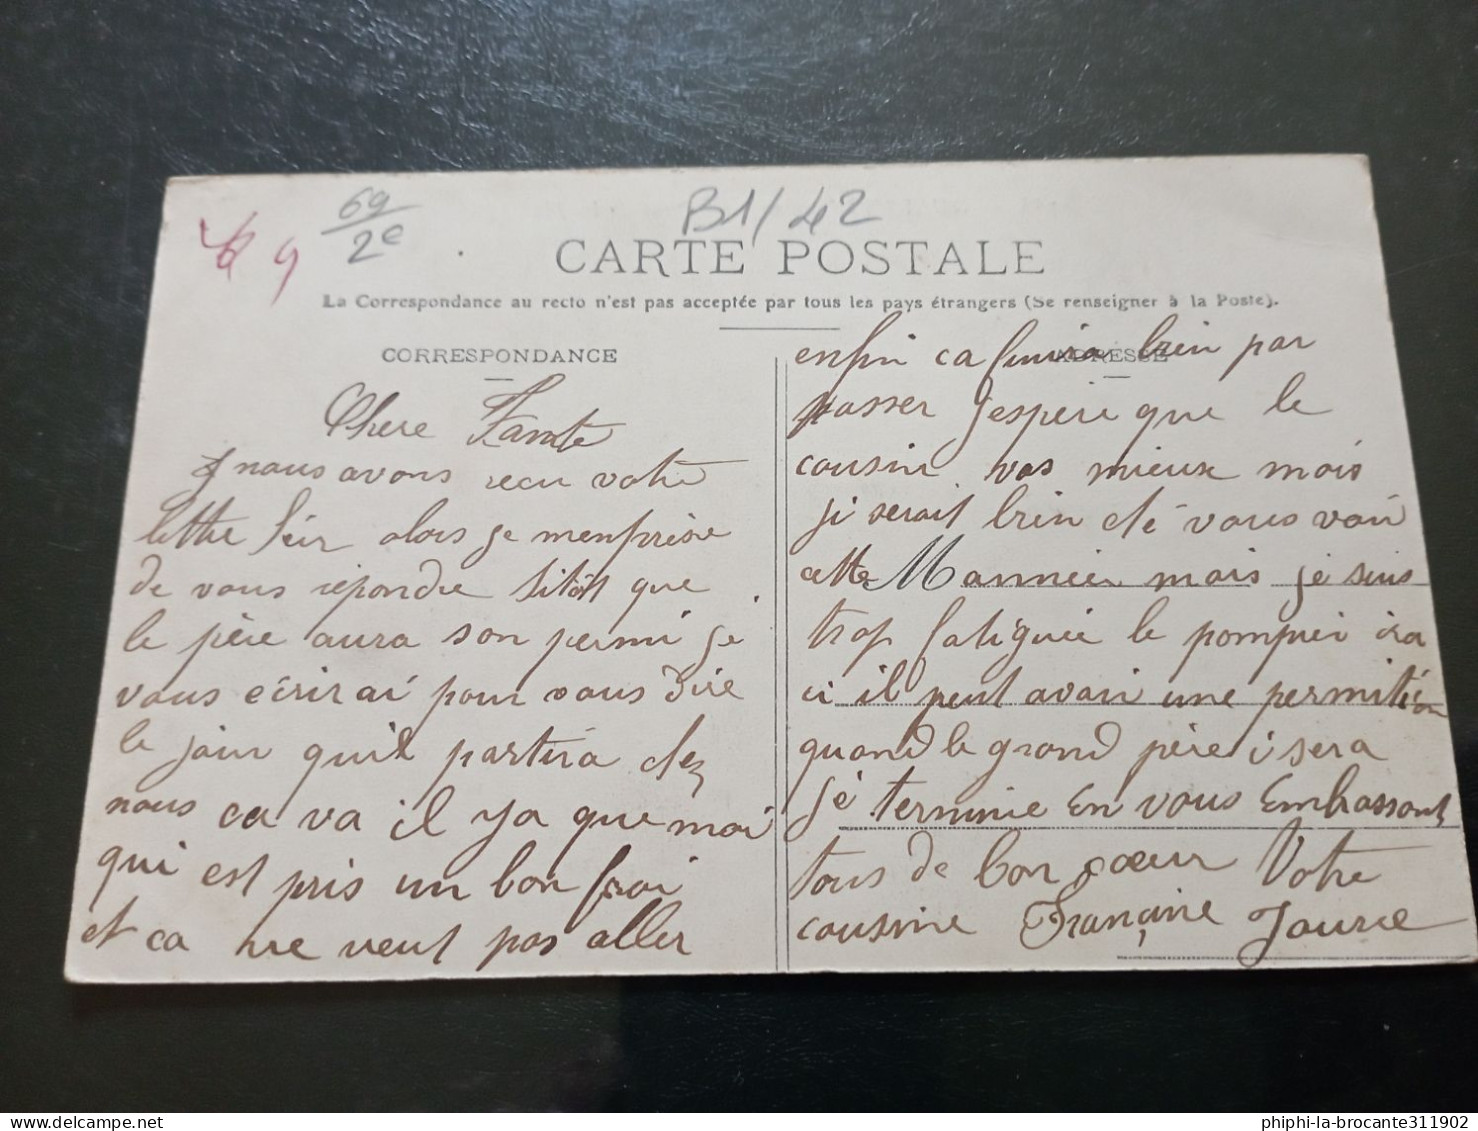 69
2e
B1/42
69
CARTE POSTALE
La Correspondance au recto n'est pas acceptée par tous les pays étrangers (Se renseigner à la Poste).
CORRESPONDANCE
Chere Tante
nous avons recu votre
lettre hier alors je menprése
de vous répondre sitôt que
le père aura son permi je
vous écrirai pour vous dire
le jour quil partira chez
nous ca va il y a que moi
qui est pris un bon froi
et ca ne veut pas aller
ADRESSE
enfin ca finira bien par
passer jespere que le
cousin vas mieux mois
je serait bien été vous voir
cette Mannier mais je suis
trop fatiguée le pompier ira
ci il peut avoir une permition
quand le grand père i sera
je termine En vous Embrassant
tous de bon cœur Votre
cousine Françine Jource
phiphi-la-brocante311902